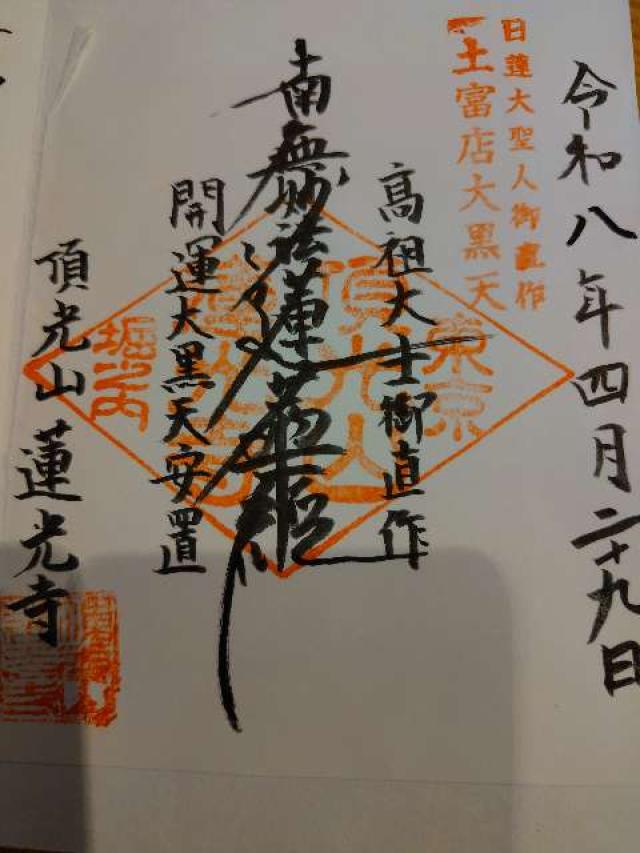 令和八年四月二十九日
日蓮大聖人御直作
土富店大黒天
東京
高祖大士御直作
南無妙法蓮華経
開運大黒天安置
堀之内
頂光山 蓮光寺